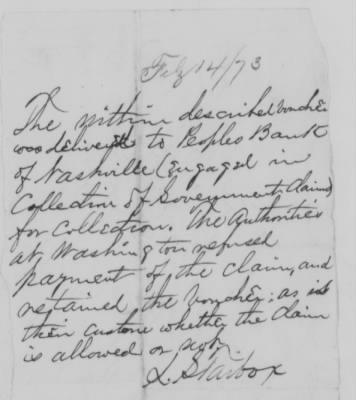 Feb 14/73
The within described voucher
was delivered to Peoples Bank
of Nashville (Engaged in
Collection of Government Claims)
for Collection. The Authorities
at Washington refused
payment of the claim, and
retained the voucher; as is
their custom whether the claim
is allowed or not.